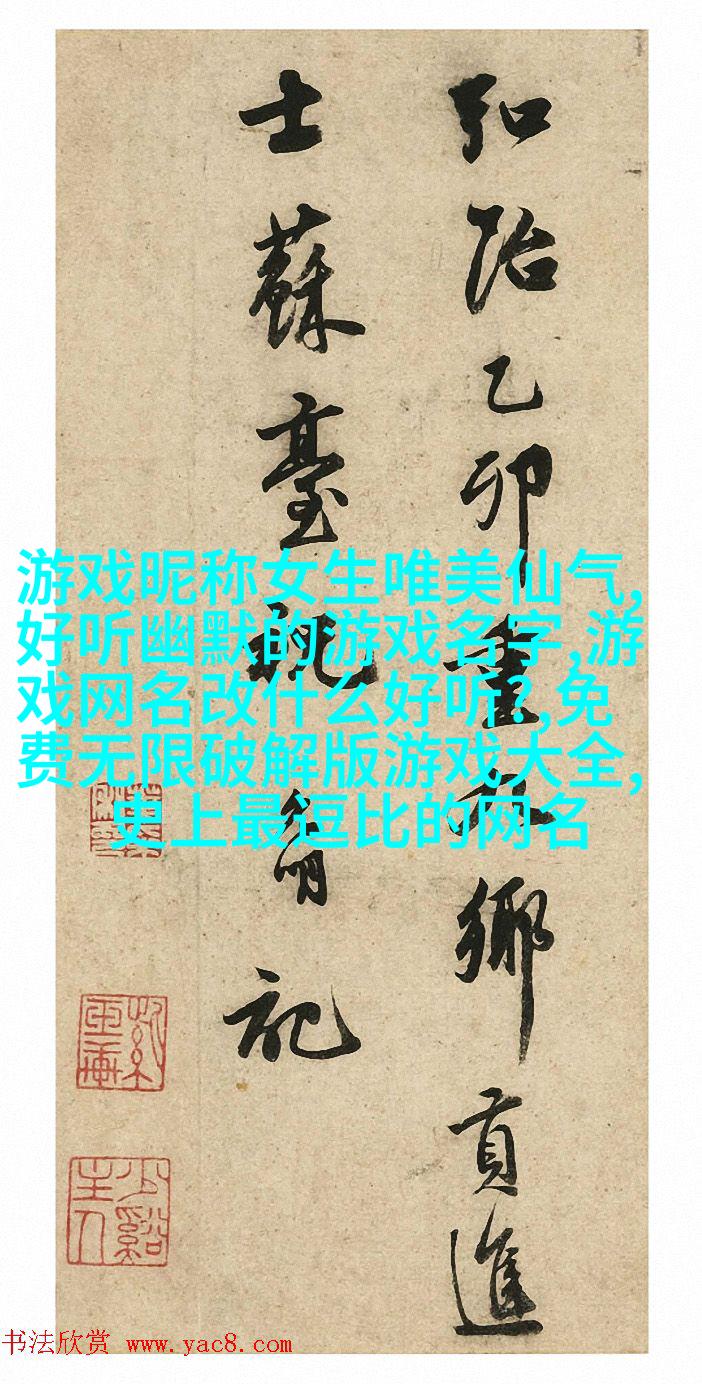 弘治乙卯重九鄉貢進
士蘇臺祝允明記
游戏昵称女生唯美仙气,
好听幽默的游戏名字,游
戏网名改什么好听?,免
费无限破解版游戏大全,
史上最逗比的网名
少谿主人
书法欣赏 www.yac8.com